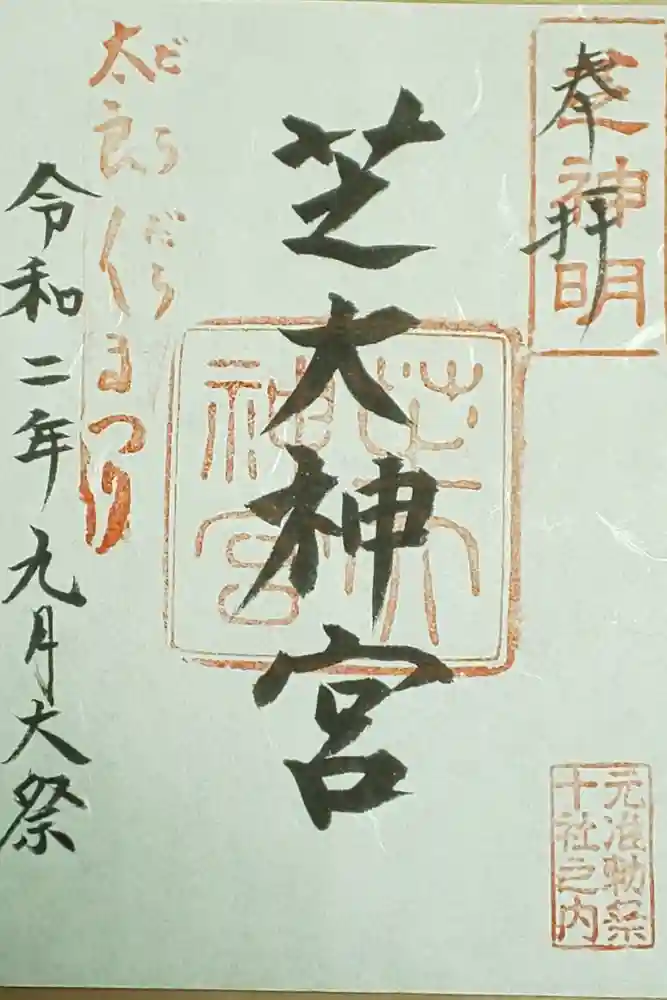 奉拝
芝神明
芝大神宮
芝大神宮
だらだら
太良くまつり
令和二年九月大祭
元准勅祭
十社之内